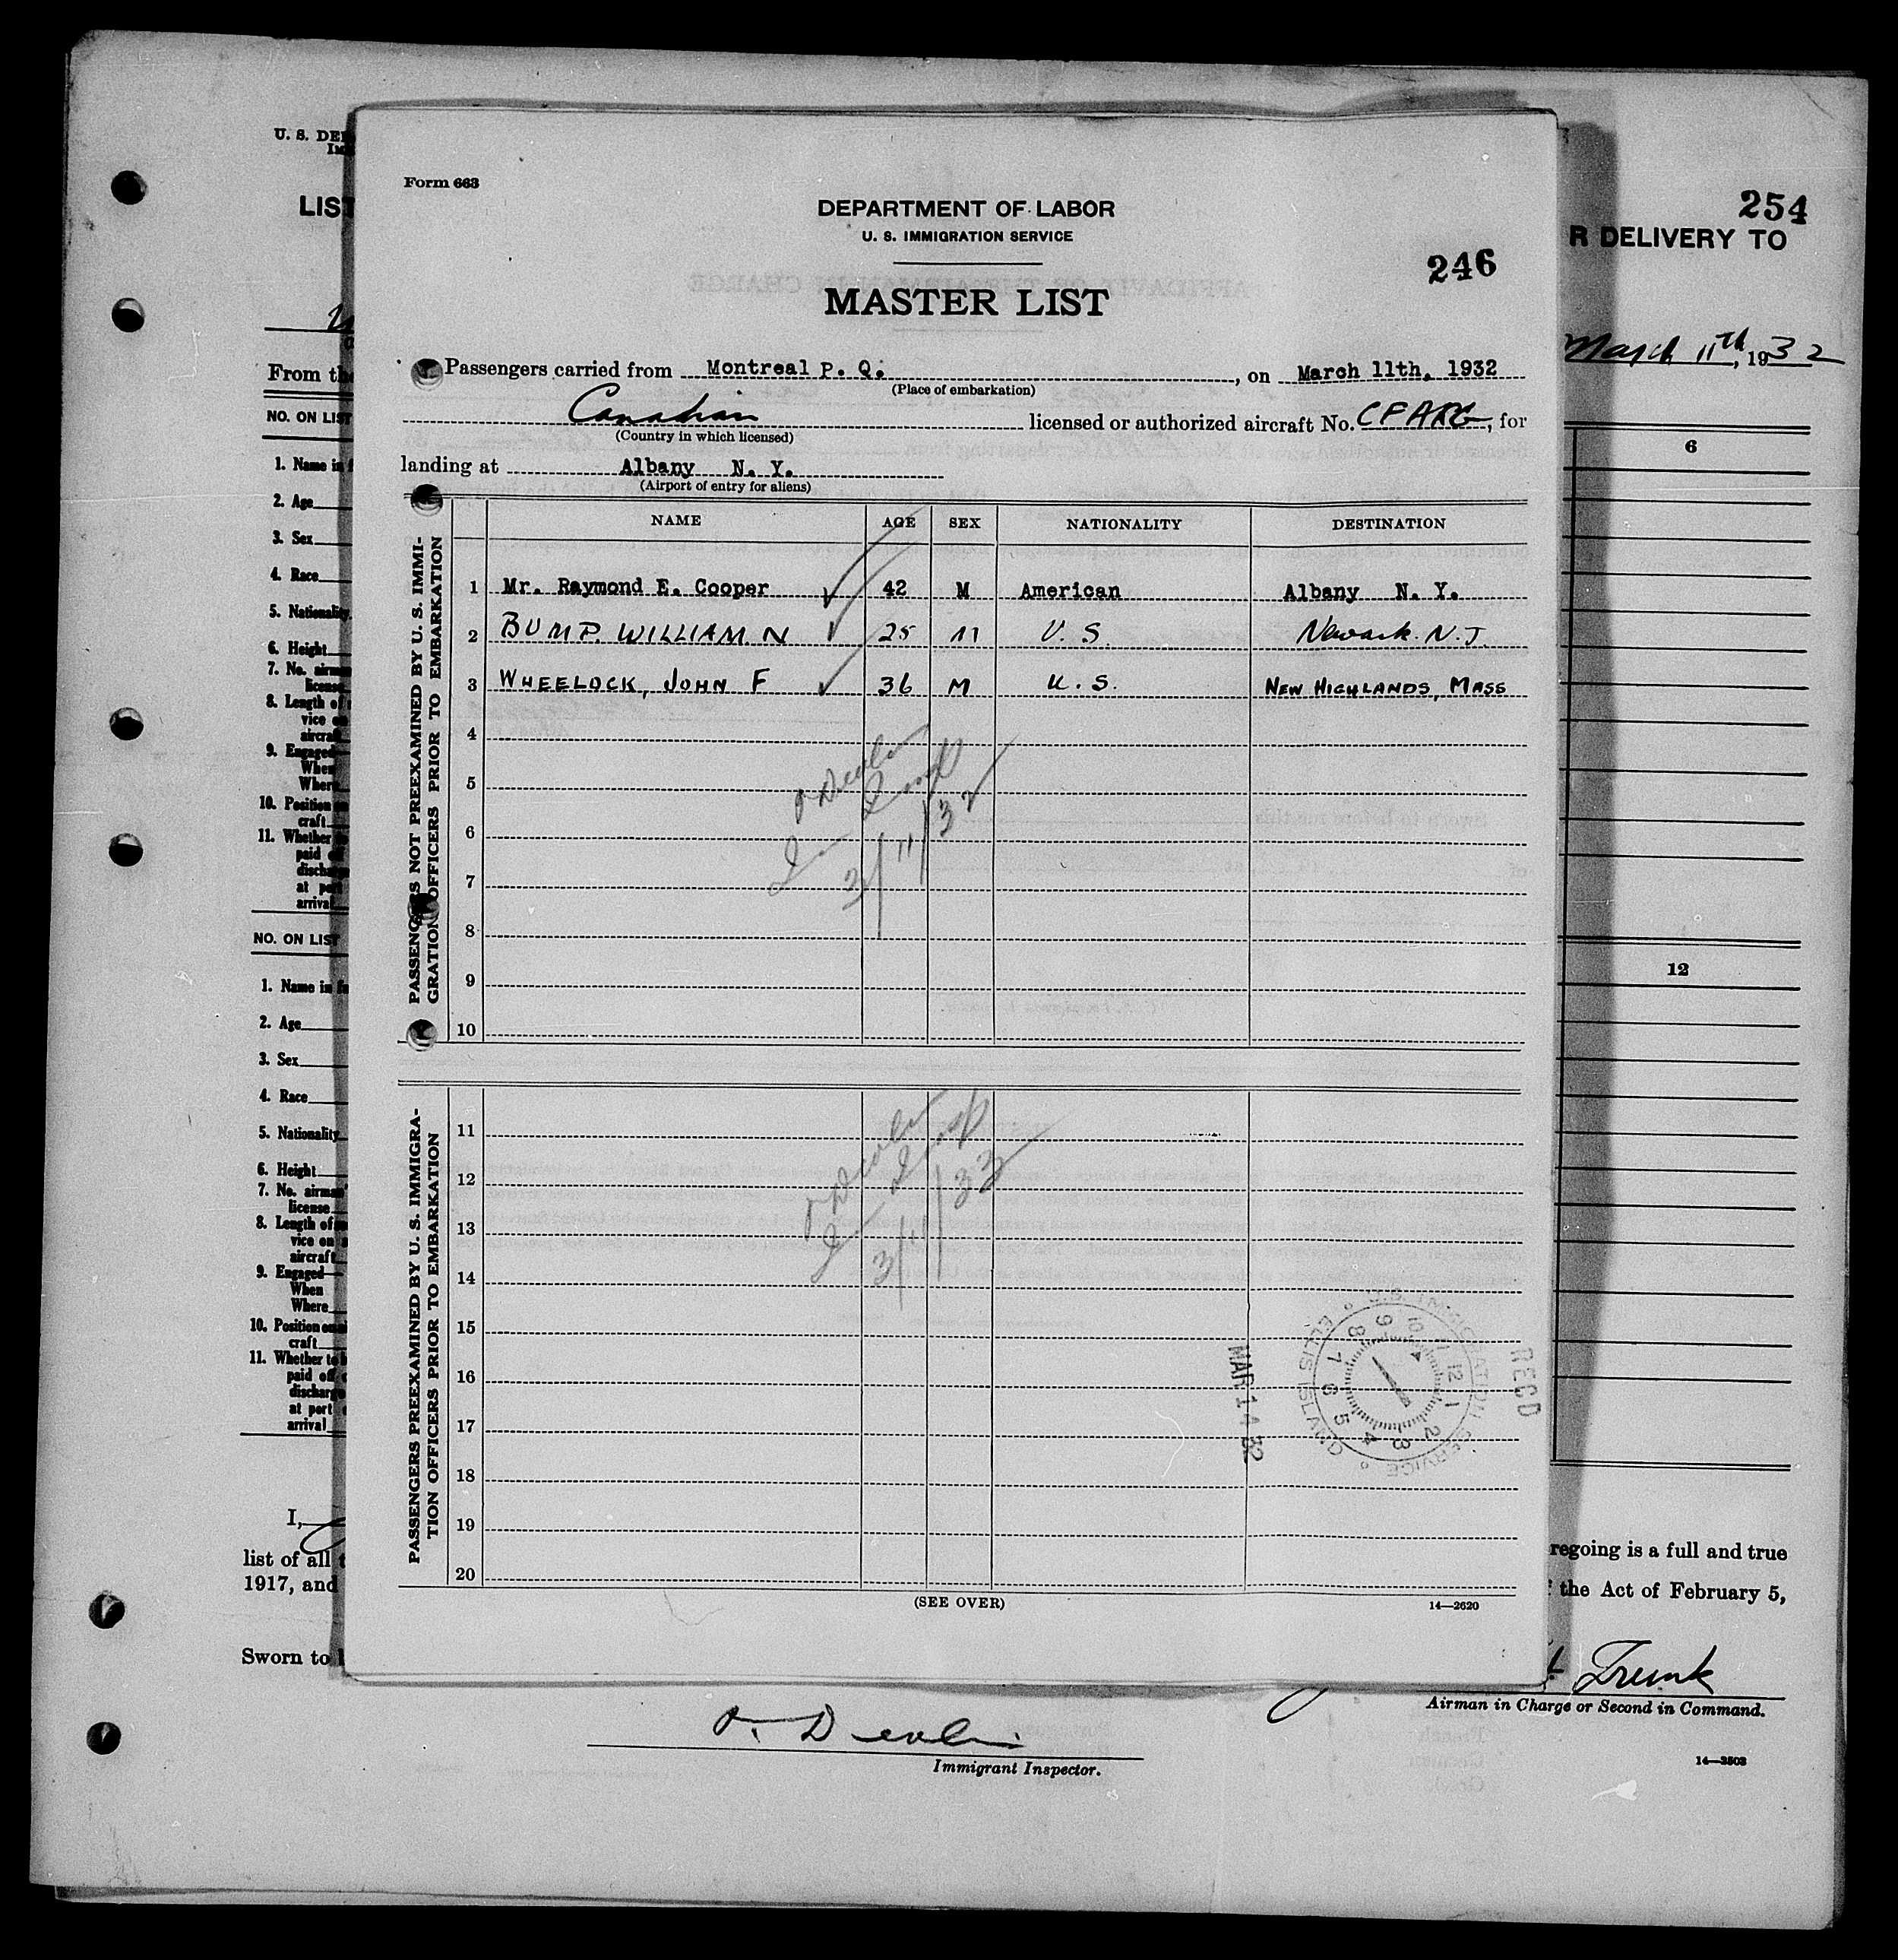 U. S. DE
LIS
254
R DELIVERY TO
March 11th, 1932
From th
NO. ON LIST
6
1. Name in f
2. Age
3. Sex
4. Race
5. Nationality
6. Height
7. No. airma
license
8. Length of
vice o
aircra
9. Engaged—
When
Where
10. Position
craft
11. Whether
paid
discha
at po
arrival
NO. ON LIST
12
1. Name in f
2. Age
3. Sex
4. Race
5. Nationality
6. Height
7. No. airman'
license
8. Length of
vice on
aircraft
9. Engaged—
When
Where
10. Position on
craft
11. Whether to
paid off
discharg
at port
arrival
I,
list of all
1917, and
Sworn to
regoing is a full and true
the Act of February 5,
Airman in Charge or Second in Command.
O. Devlin
Immigrant Inspector.
14—2503
Form 663
DEPARTMENT OF LABOR
U. S. IMMIGRATION SERVICE
246
MASTER LIST
Passengers carried from Montreal P. Q. , on March 11th, 1932
(Place of embarkation)
Canadian licensed or authorized aircraft No. CFARG, for
(Country in which licensed)
landing at Albany N. Y.
(Airport of entry for aliens)
NAME AGE SEX NATIONALITY DESTINATION
PASSENGERS NOT PREEXAMINED BY U. S. IMMI-
GRATION OFFICERS PRIOR TO EMBARKATION
1 Mr. Raymond E. Cooper 42 M American Albany N. Y.
2 BUMP. WILLIAM N 25 M U. S. Newark. N. J.
3 WHEELOCK, JOHN F 36 M U. S. NEW HIGHLANDS, MASS
4
5
6
7
8
9
10
O Devlin
Imm Insp
3/11/32
PASSENGERS PREEXAMINED BY U. S. IMMIGRA-
TION OFFICERS PRIOR TO EMBARKATION
11
12
13
14
15
16
17
18
19
20
O Devlin
Imm Insp
3/11/32
REC'D
U.S. IMMIGRATION SERVICE
ELLIS ISLAND
12 1 2 3 4 5 6 7 8 9 10 11
MAR 14 32
(SEE OVER)
14—2620